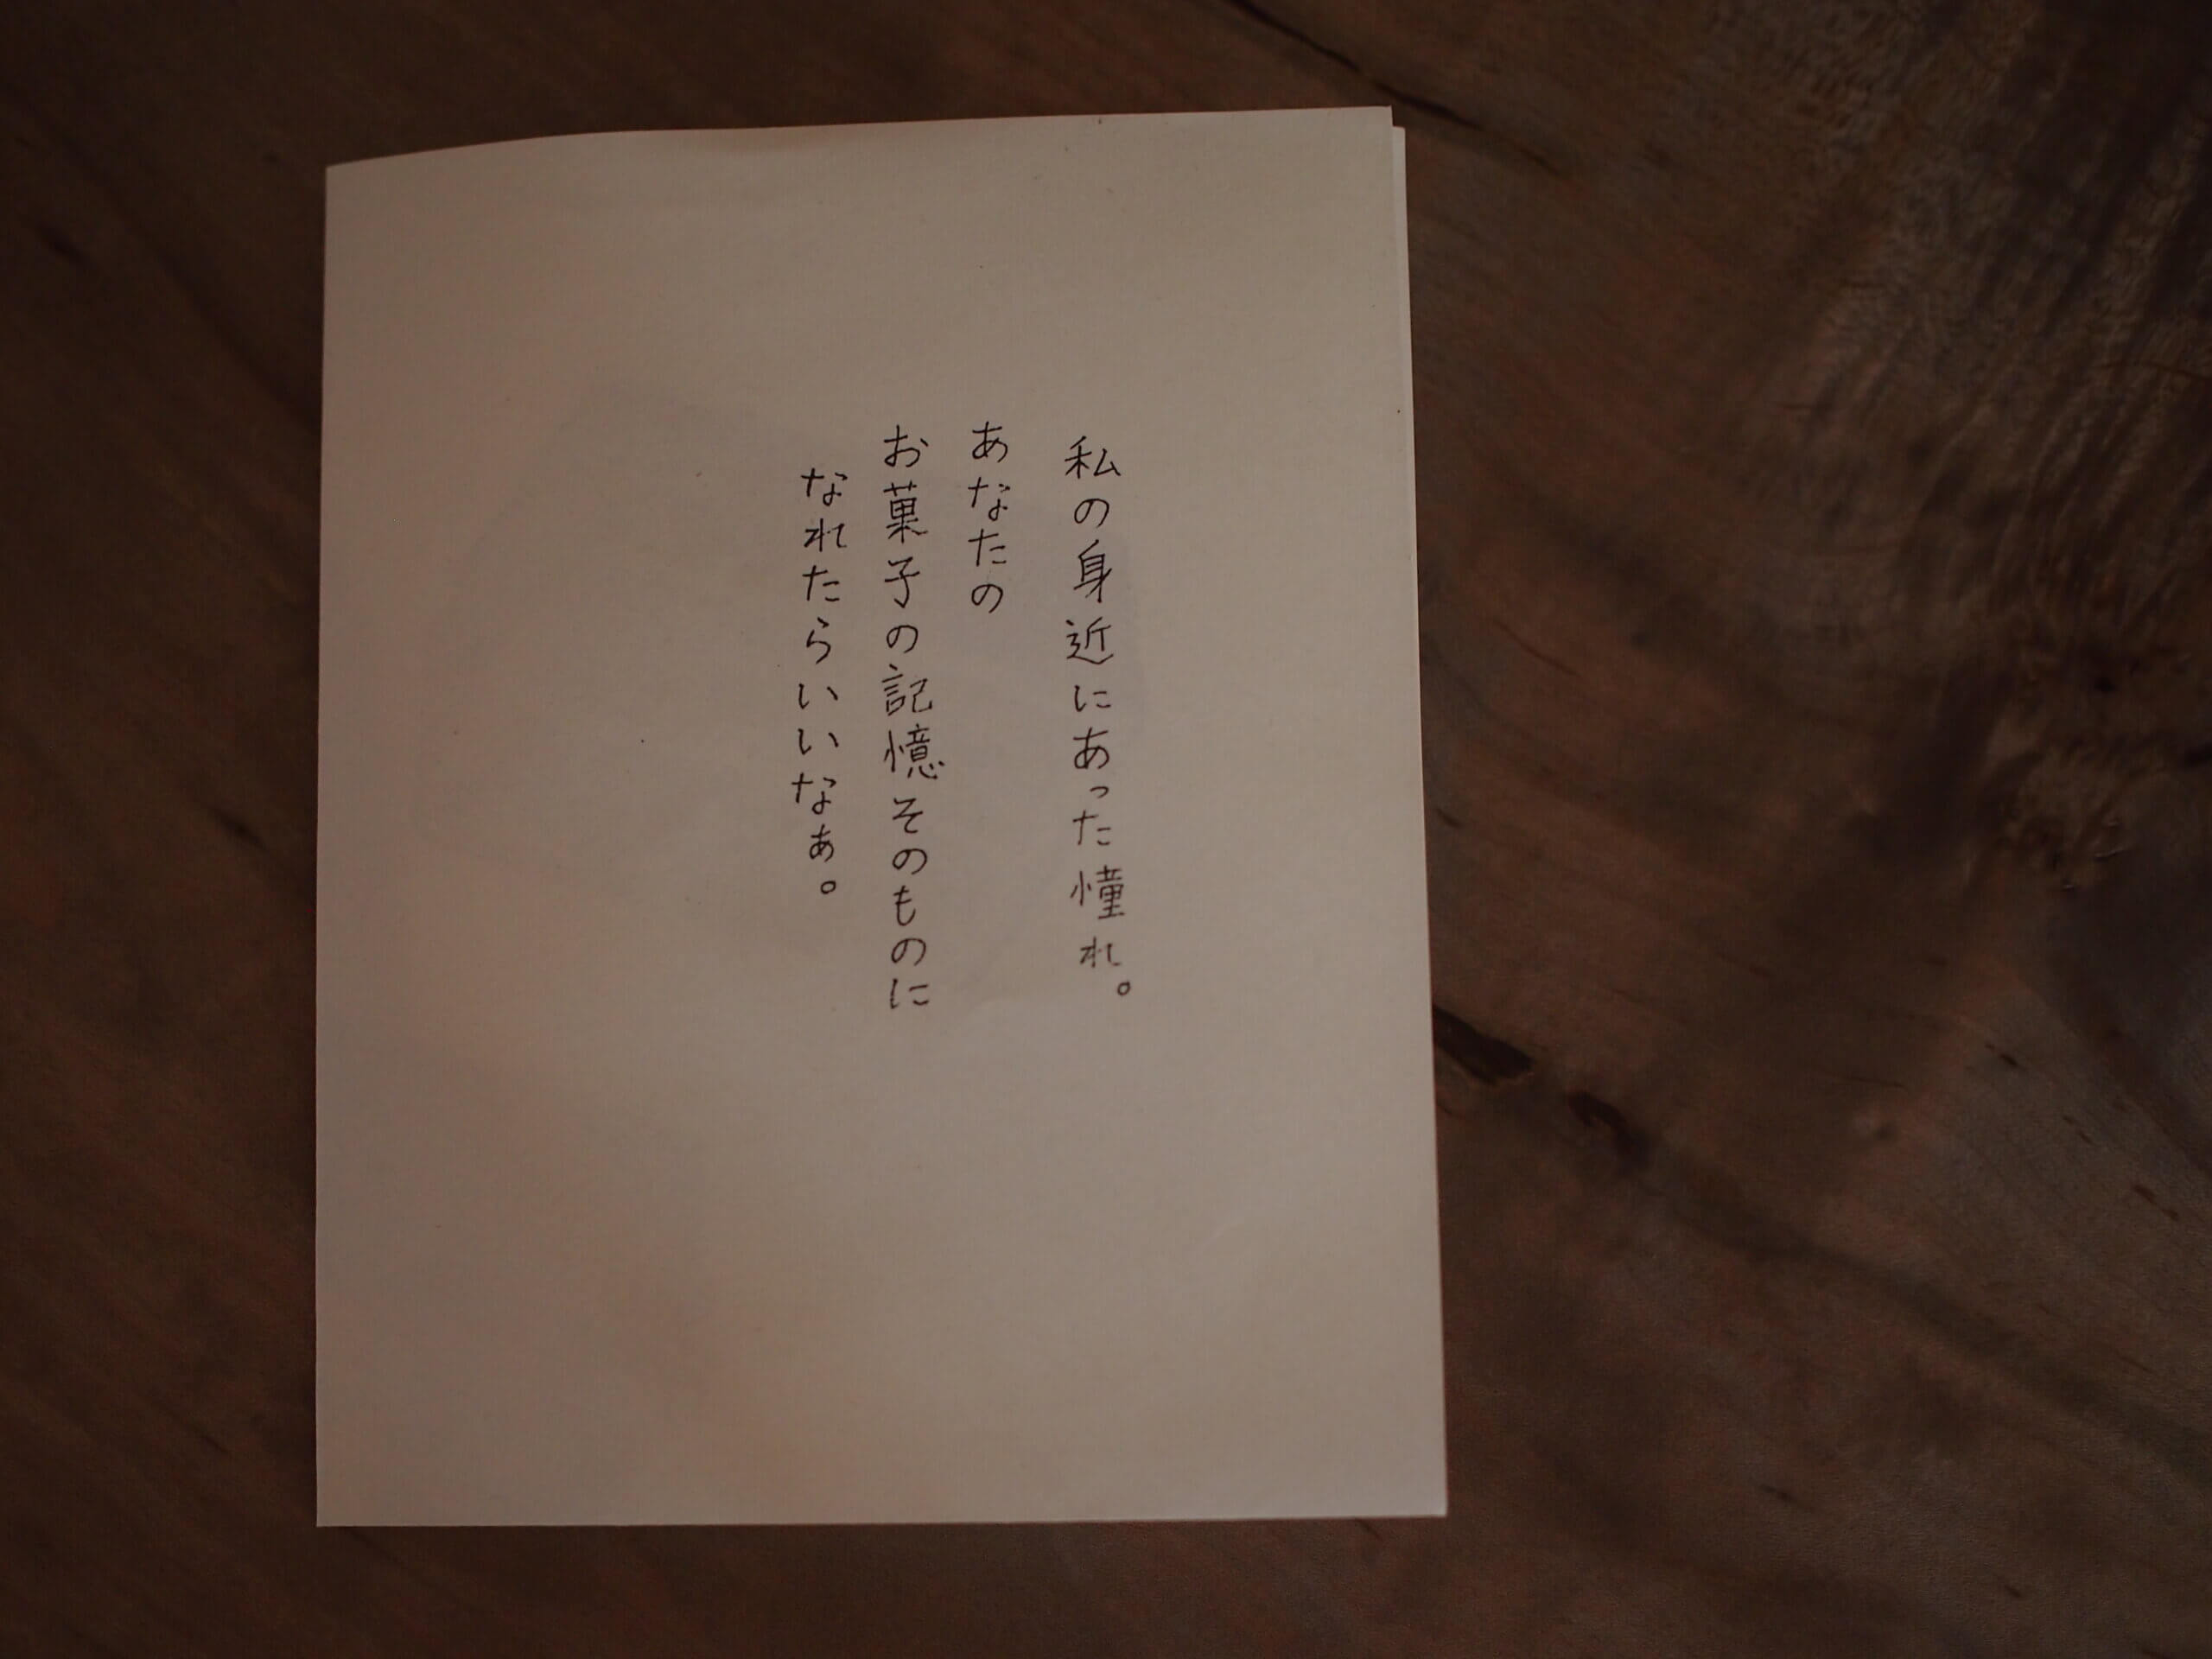 私の身近にあった憧れ。
あなたの
お菓子の記憶そのものに
なれたらいいなぁ。